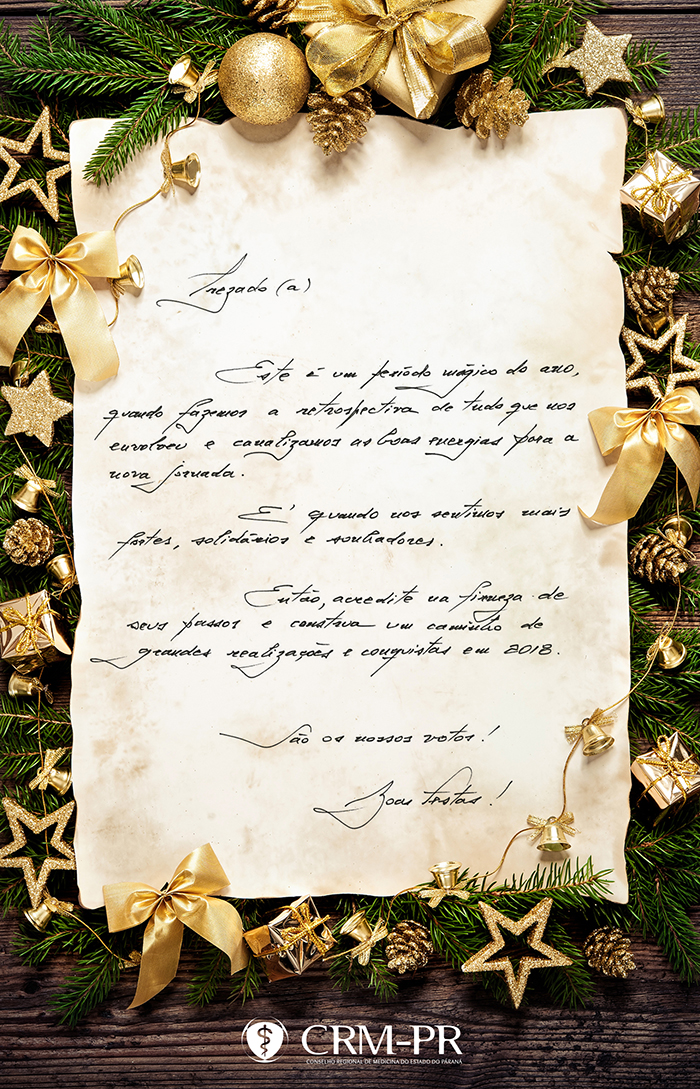 Prezado (a)
Este é um período mágico do ano,
quando fazemos a retrospectiva de tudo que nos
envolveu e canalizamos as boas energias para a
nova jornada.
É quando nos sentimos mais
fortes, solidários e sonhadores.
Então, acredite na firmeza de
seus passos e construa um caminho de
grandes realizações e conquistas em 2018.
São os nossos votos!
Boas Festas!
CRM-PR
CONSELHO REGIONAL DE MEDICINA DO ESTADO DO PARANÁ